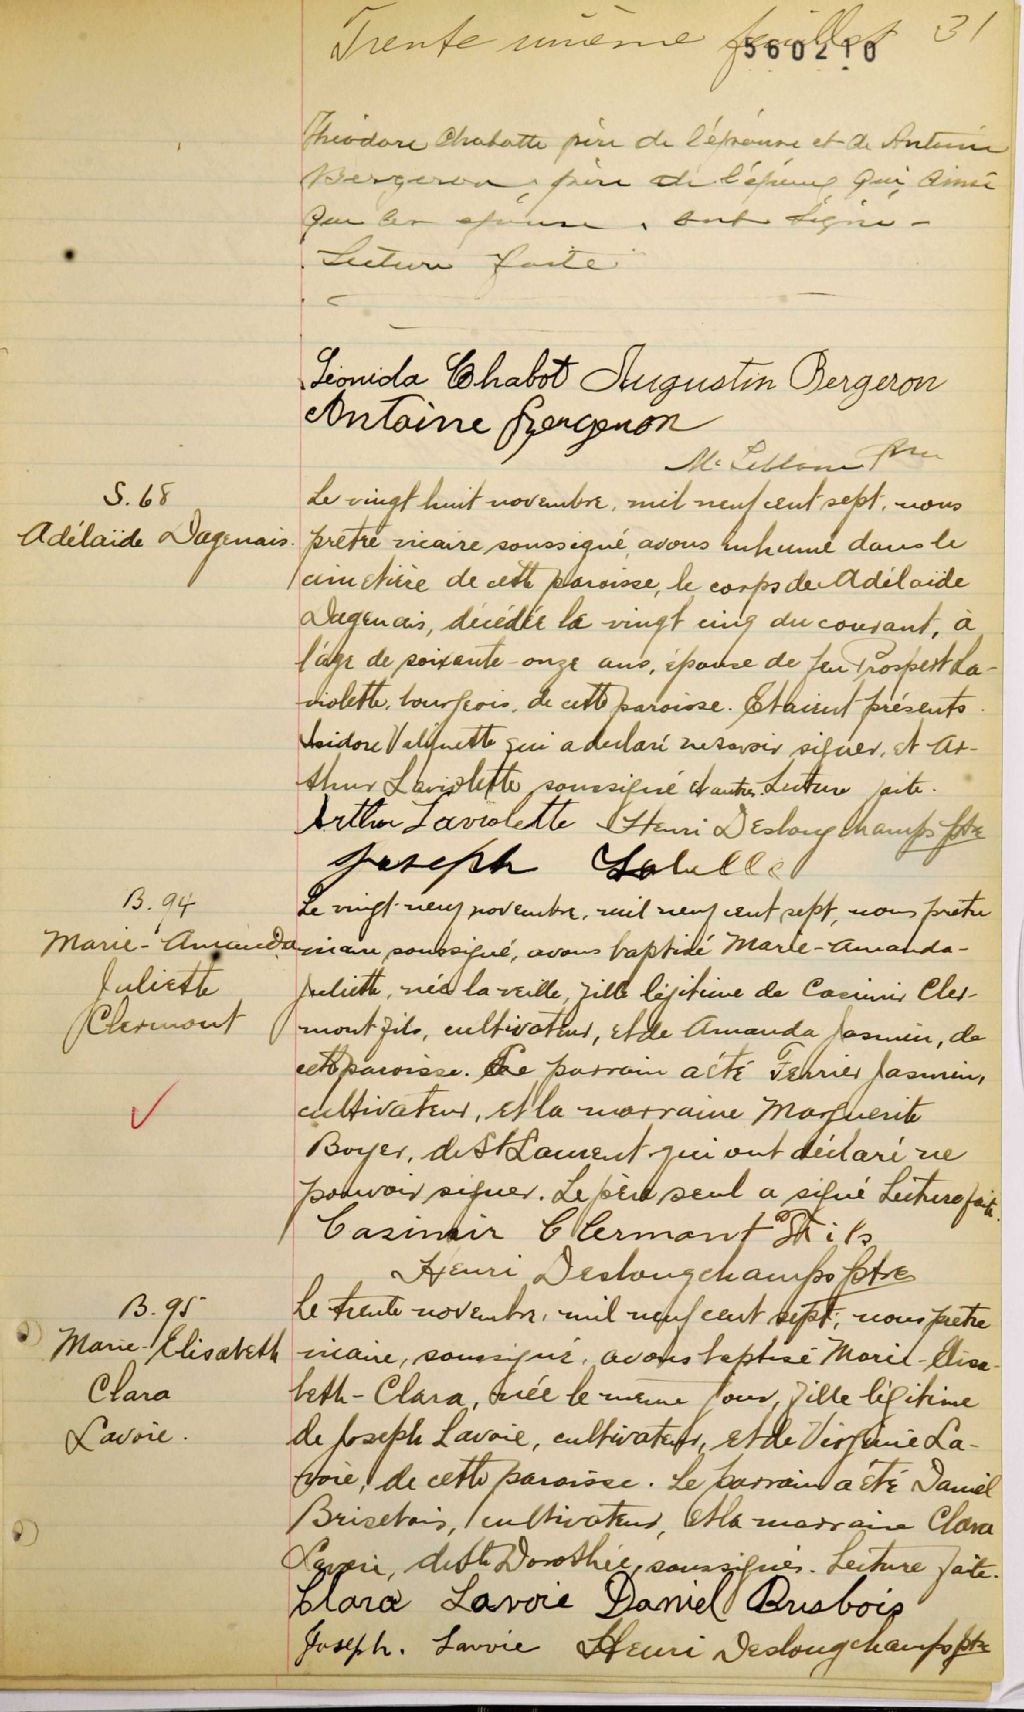 Trente unième feuillet 31
560210
Théodore Chabotte père de l'épouse et de Antoine
Bergeron, père de l'époux qui, ainsi
que les époux, ont signé -
Lecture faite
Léonida Chabot Augustin Bergeron
Antoine Bergeron
Ptre
S. 68
Adélaïde Dagenais.
Le vingt huit novembre, mil neuf cent sept, nous
prêtre vicaire soussigné, avons inhumé dans le
cimetière de cette paroisse, le corps de Adélaïde
Dagenais, décédée le vingt cinq du courant, à
l'âge de soixante-onze ans, épouse de feu Prospert La-
violette, bourgeois, de cette paroisse. Etaient présents
Isidore Valiquette qui a déclaré ne savoir signer, et Ar-
thur Laviolette soussigné et autres. Lecture faite.
Arthur Laviolette Henri Deslongchamps ptre
Joseph Labelle
B. 94
Marie-Amanda
Juliette
Clermont
Le vingt-neuf novembre, mil neuf cent sept, nous prêtre
vicaire soussigné, avons baptisé Marie-Amanda-
Juliette, née la veille, fille légitime de Casimir Cler-
mont fils, cultivateur, et de Amanda Jasmin, de
cette paroisse. Le parrain a été Ferrier Jasmin,
cultivateur, et la marraine Marguerite
Boyer, de St Laurent qui ont déclaré ne
pouvoir signer. Le père seul a signé Lecture faite.
Casimir Clermont Fils
Henri Deslongchamps ptre
B. 95
Marie-Elisabeth
Clara
Lavoie.
Le trente novembre, mil neuf cent sept, nous prêtre
vicaire, soussigné, avons baptisé Marie-Elisa-
beth-Clara, née le même jour, fille légitime
de Joseph Lavoie, cultivateur, et de Virginie La-
voie, de cette paroisse. Le parrain a été Daniel
Brisebois, cultivateur, et la marraine Clara
Lavoie, de Ste Dorothée, soussignés. Lecture faite.
Clara Lavoie Daniel Brisbois
Joseph. Lavoie Henri Deslongchamps ptre